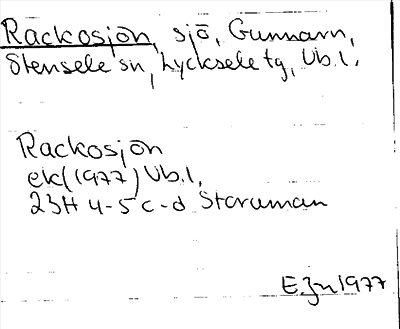 Rackosjön, sjö, Gunnarn,
Stensele sn, Lycksele tg, Vb.l.
Rackosjön
ek(1977) Vb.l.
23H 4-5 c-d Storuman
E.Jn 1977